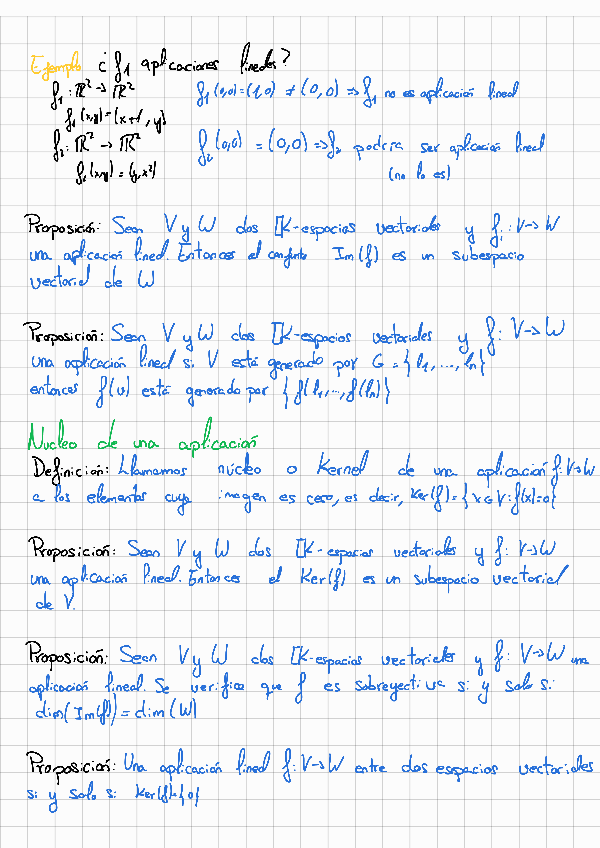 Ejemplo ¿ f₁ aplicaciones lineales?
f₁: ℝ² → ℝ² f₁(0,0)=(1,0) ≠ (0,0) ⇒ f₁ no es aplicación lineal
f₁(x,y)=(x+1, y)
f₂: ℝ² → ℝ² f₂(0,0) = (0,0) ⇒ f₂ podría ser aplicación lineal
f₂(x,y) = (y, x²) (no lo es)
Proposición: Sean V y W dos K-espacios vectoriales y f: V→W
una aplicación lineal. Entonces el conjunto Im(f) es un subespacio
vectorial de W
Proposición: Sean V y W dos K-espacios vectoriales y f: V→W
una aplicación lineal si V está generado por G = {l₁, ..., lₙ}
entonces f(v) está generado por {f(l₁, ..., f(lₙ)}
Nucleo de una aplicación
Definición: Llamamos núcleo o Kernel de una aplicación f: V→W
a los elementos cuya imagen es cero, es decir, Ker(f) = {x∈V: f(x)=0}
Proposición: Sean V y W dos K-espacios vectoriales y f: V→W
una aplicación lineal. Entonces el Ker(f) es un subespacio vectorial
de V.
Proposición: Sean V y W dos K-espacios vectoriales y f: V→W una
aplicación lineal. Se verifica que f es sobreyectiva si y solo si
dim(Im(f)) = dim(W)
Proposición: Una aplicación lineal f: V→W entre dos espacios vectoriales
si y solo si Ker(f)={0}